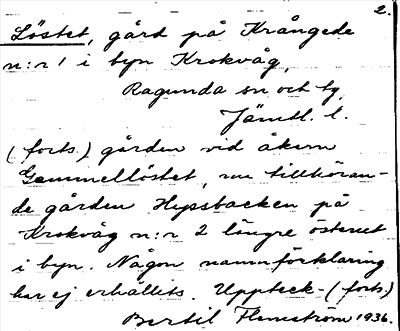 2.
Löstet, gård på Krångede
n:r 1 i byn Krokvåg,
Ragunda sn och tg,
Jämtl. l.
(forts.) gården vid åkern
Gammellöstet, nu tillhöran-
de gården Hypsbacken på
Krokvåg n:r 2 längre österut
i byn. Någon namnförklaring
har ej erhållits. Uppteck- (forts)
Bertil Flemström 1936.